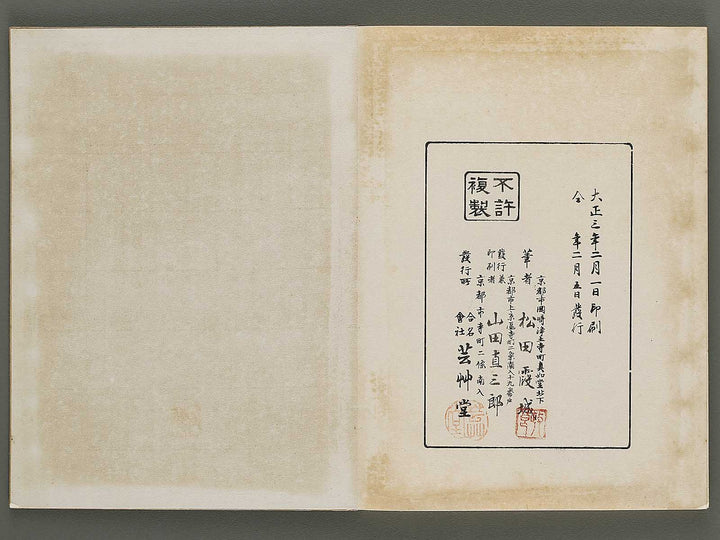 大正三年二月一日印刷
仝 年二月五日發行
不許
複製
筆者
松田霞城
發行兼
印刷者
京都市上京區寺町二条南入十九番戸
山田直三郎
發行所
京都市寺町二條南入
合名
會社
芸艸堂